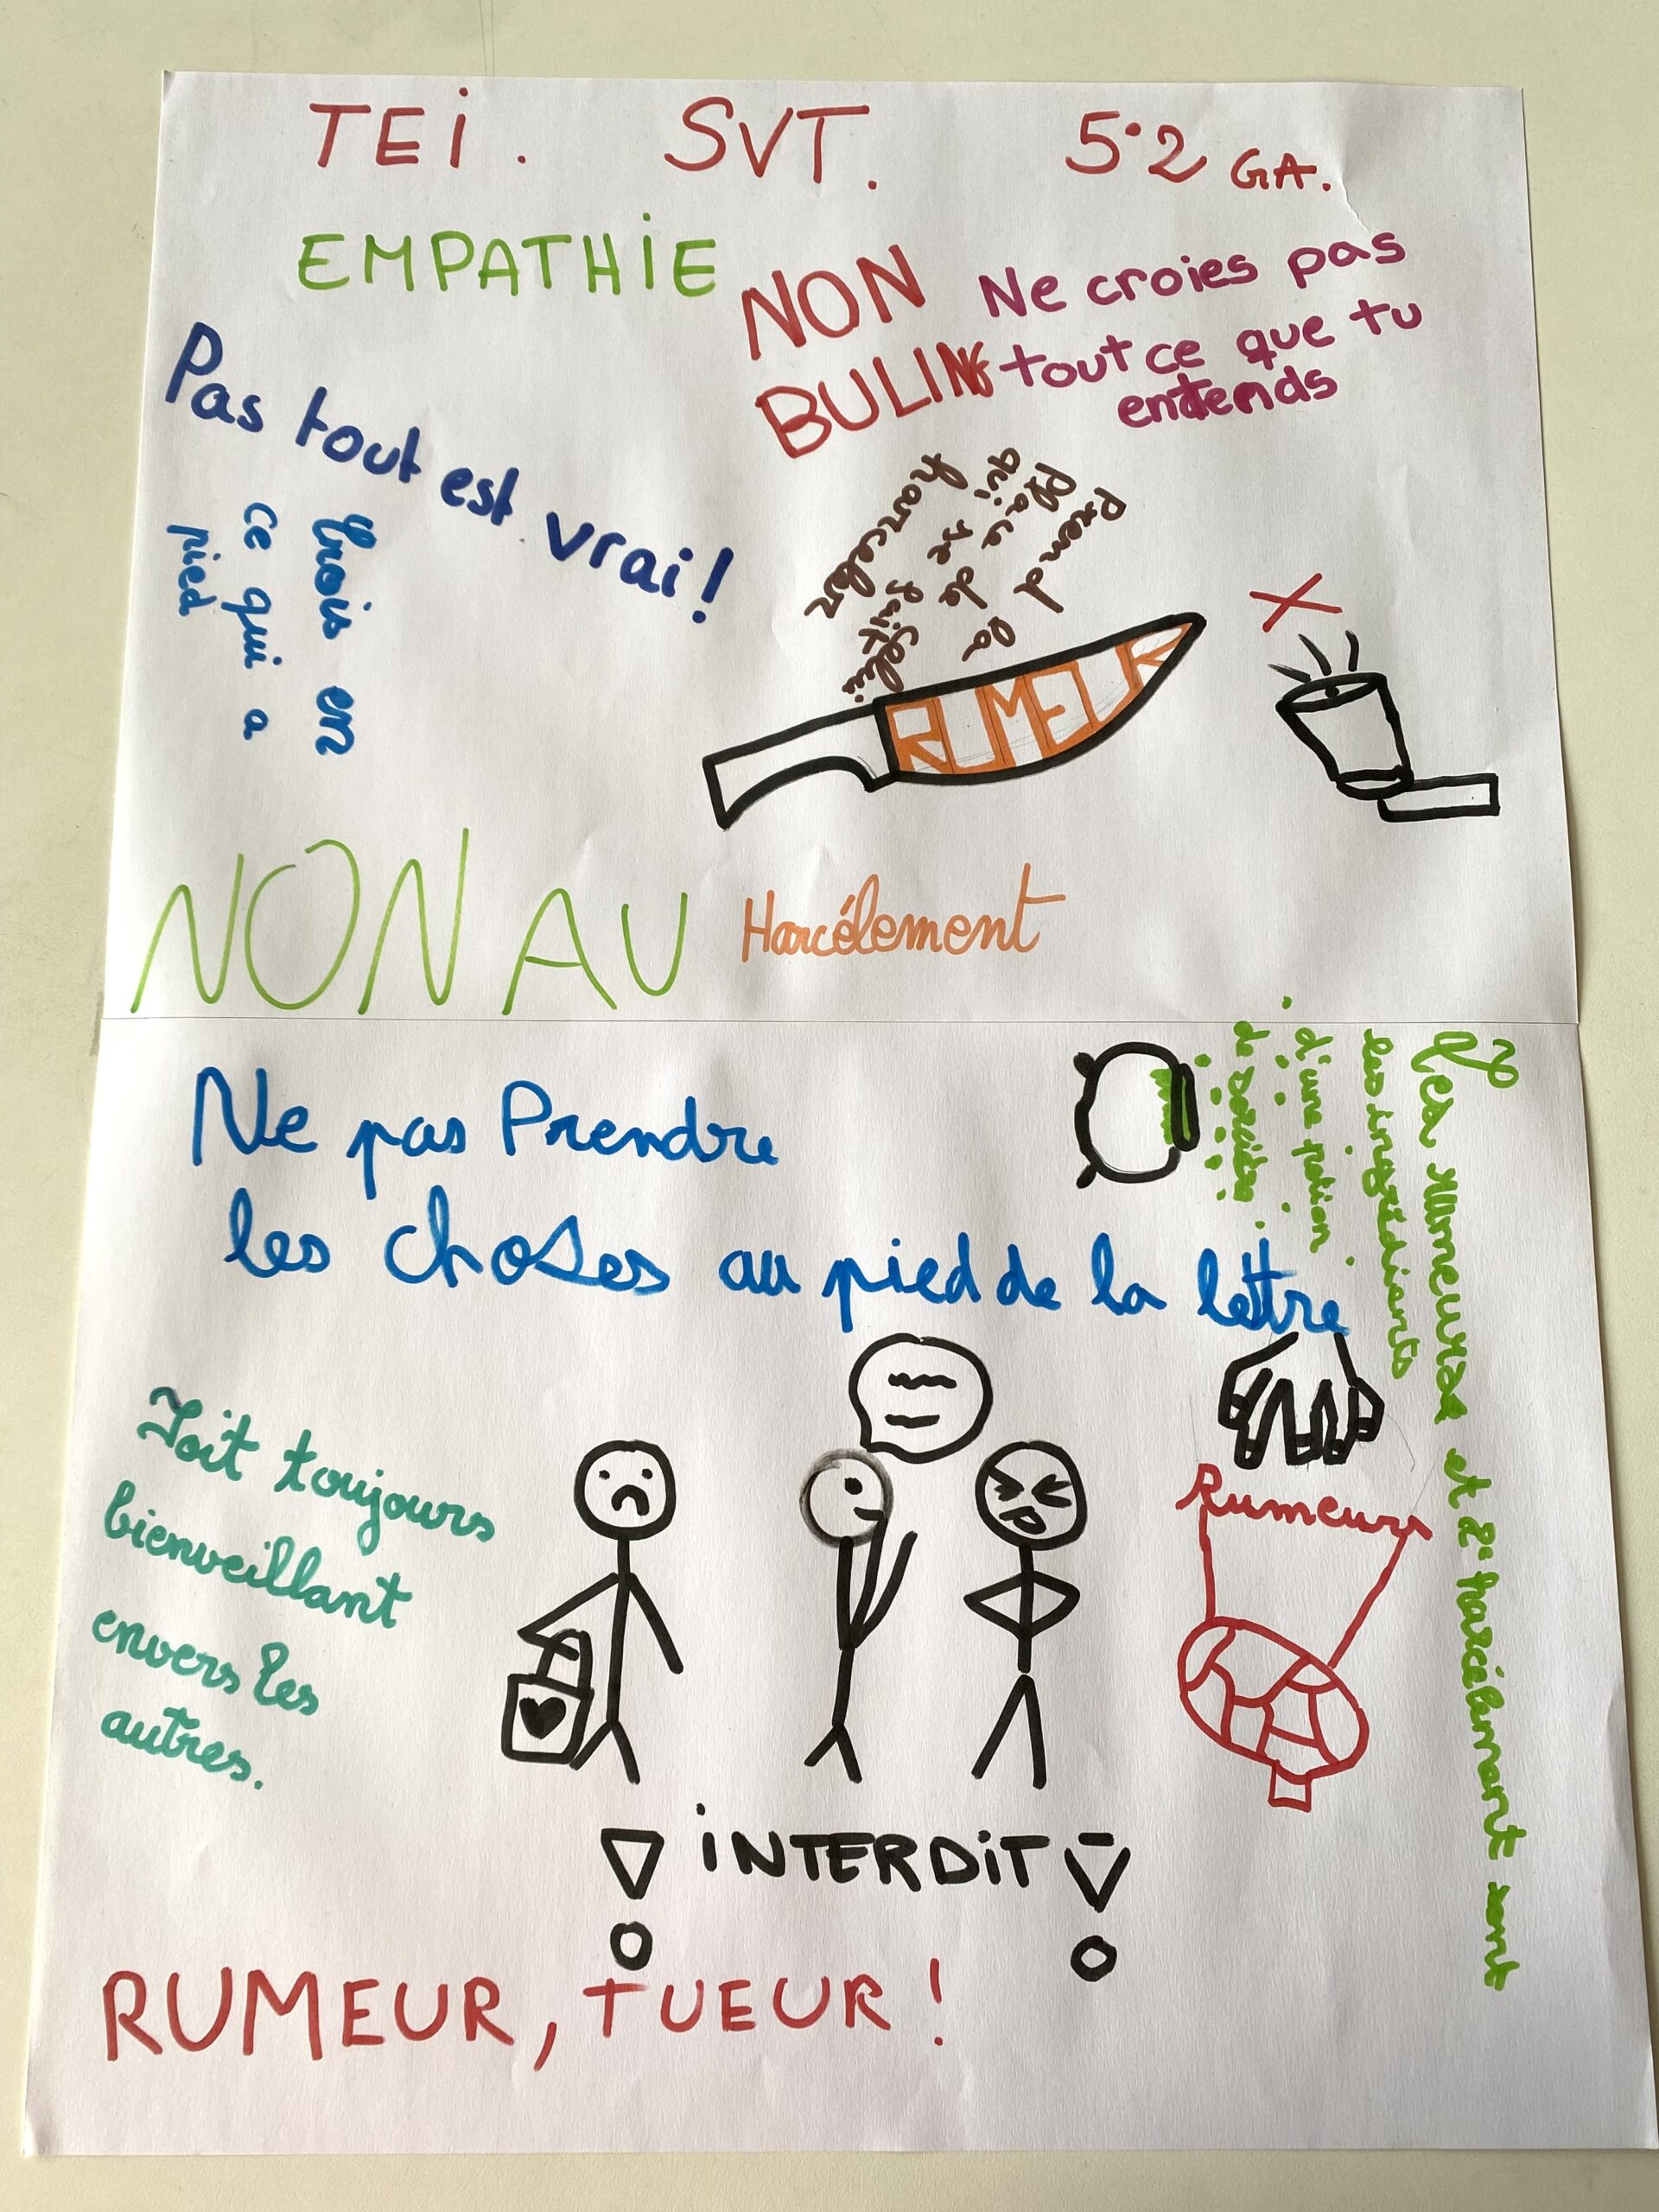 TEI. SVT. 5°2 GA.
EMPATHIE
NON
BULING
Ne croies pas
tout ce que tu
entends
Pas tout est vrai!
Crois en
ce qui a
pied
Prend la
place de celui
qui se fait
harceler
RUMEUR
NON AU Harcélement
Ne pas Prendre
les choses au pied de la lettre
Les rumeurs et l'harcélement sont
les ingrédients
d'une potion
de
Soit toujours
bienveillant
envers les
autres.
Rumeurs
INTERDIT
RUMEUR, TUEUR!